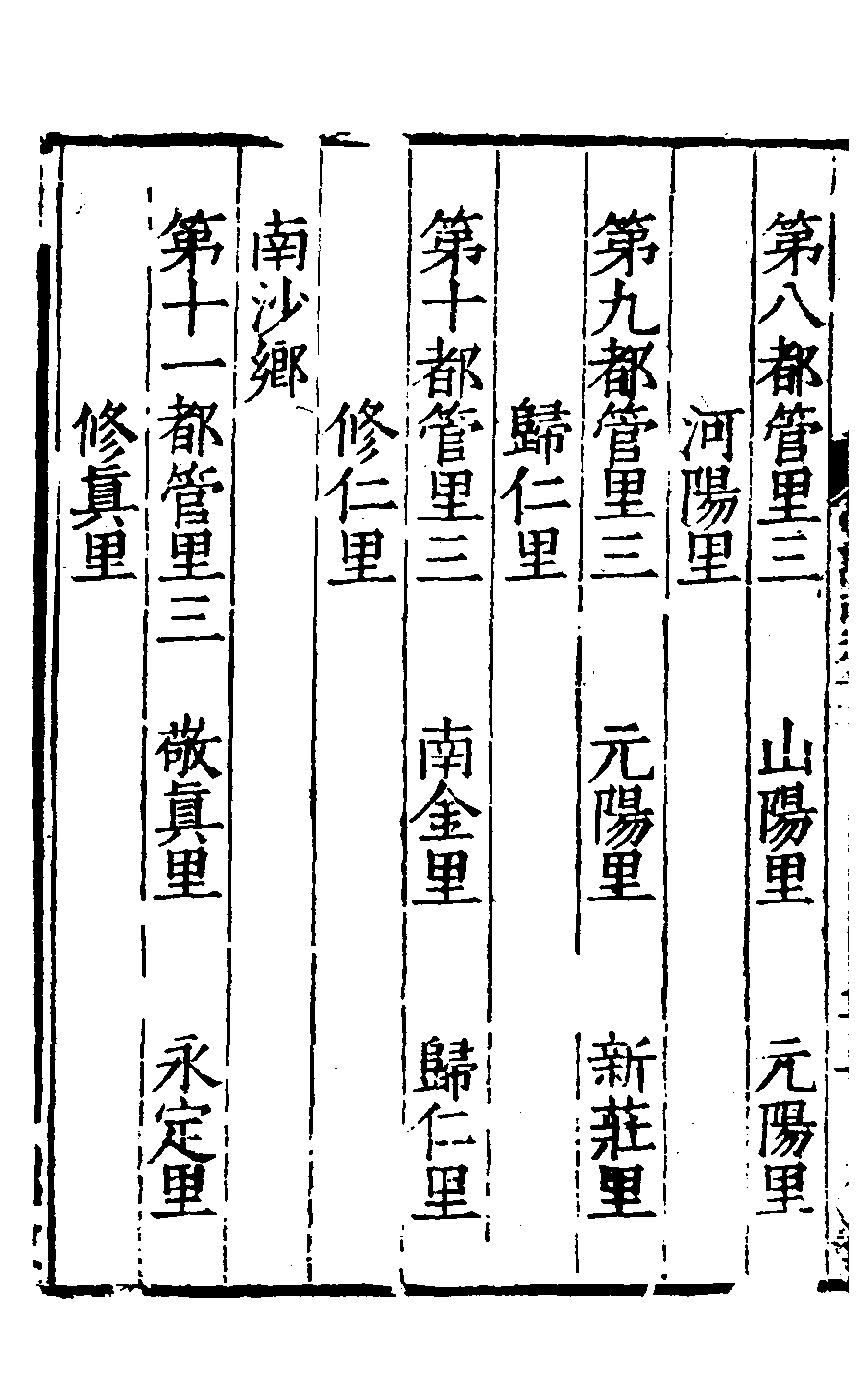 第八都管里三　山陽里　元陽里
河陽里
第九都管里三　元陽里　新莊里
歸仁里
第十都管里三　南金里　歸仁里
修仁里
南沙鄉
第十一都管里三　敬眞里　永定里
修眞里